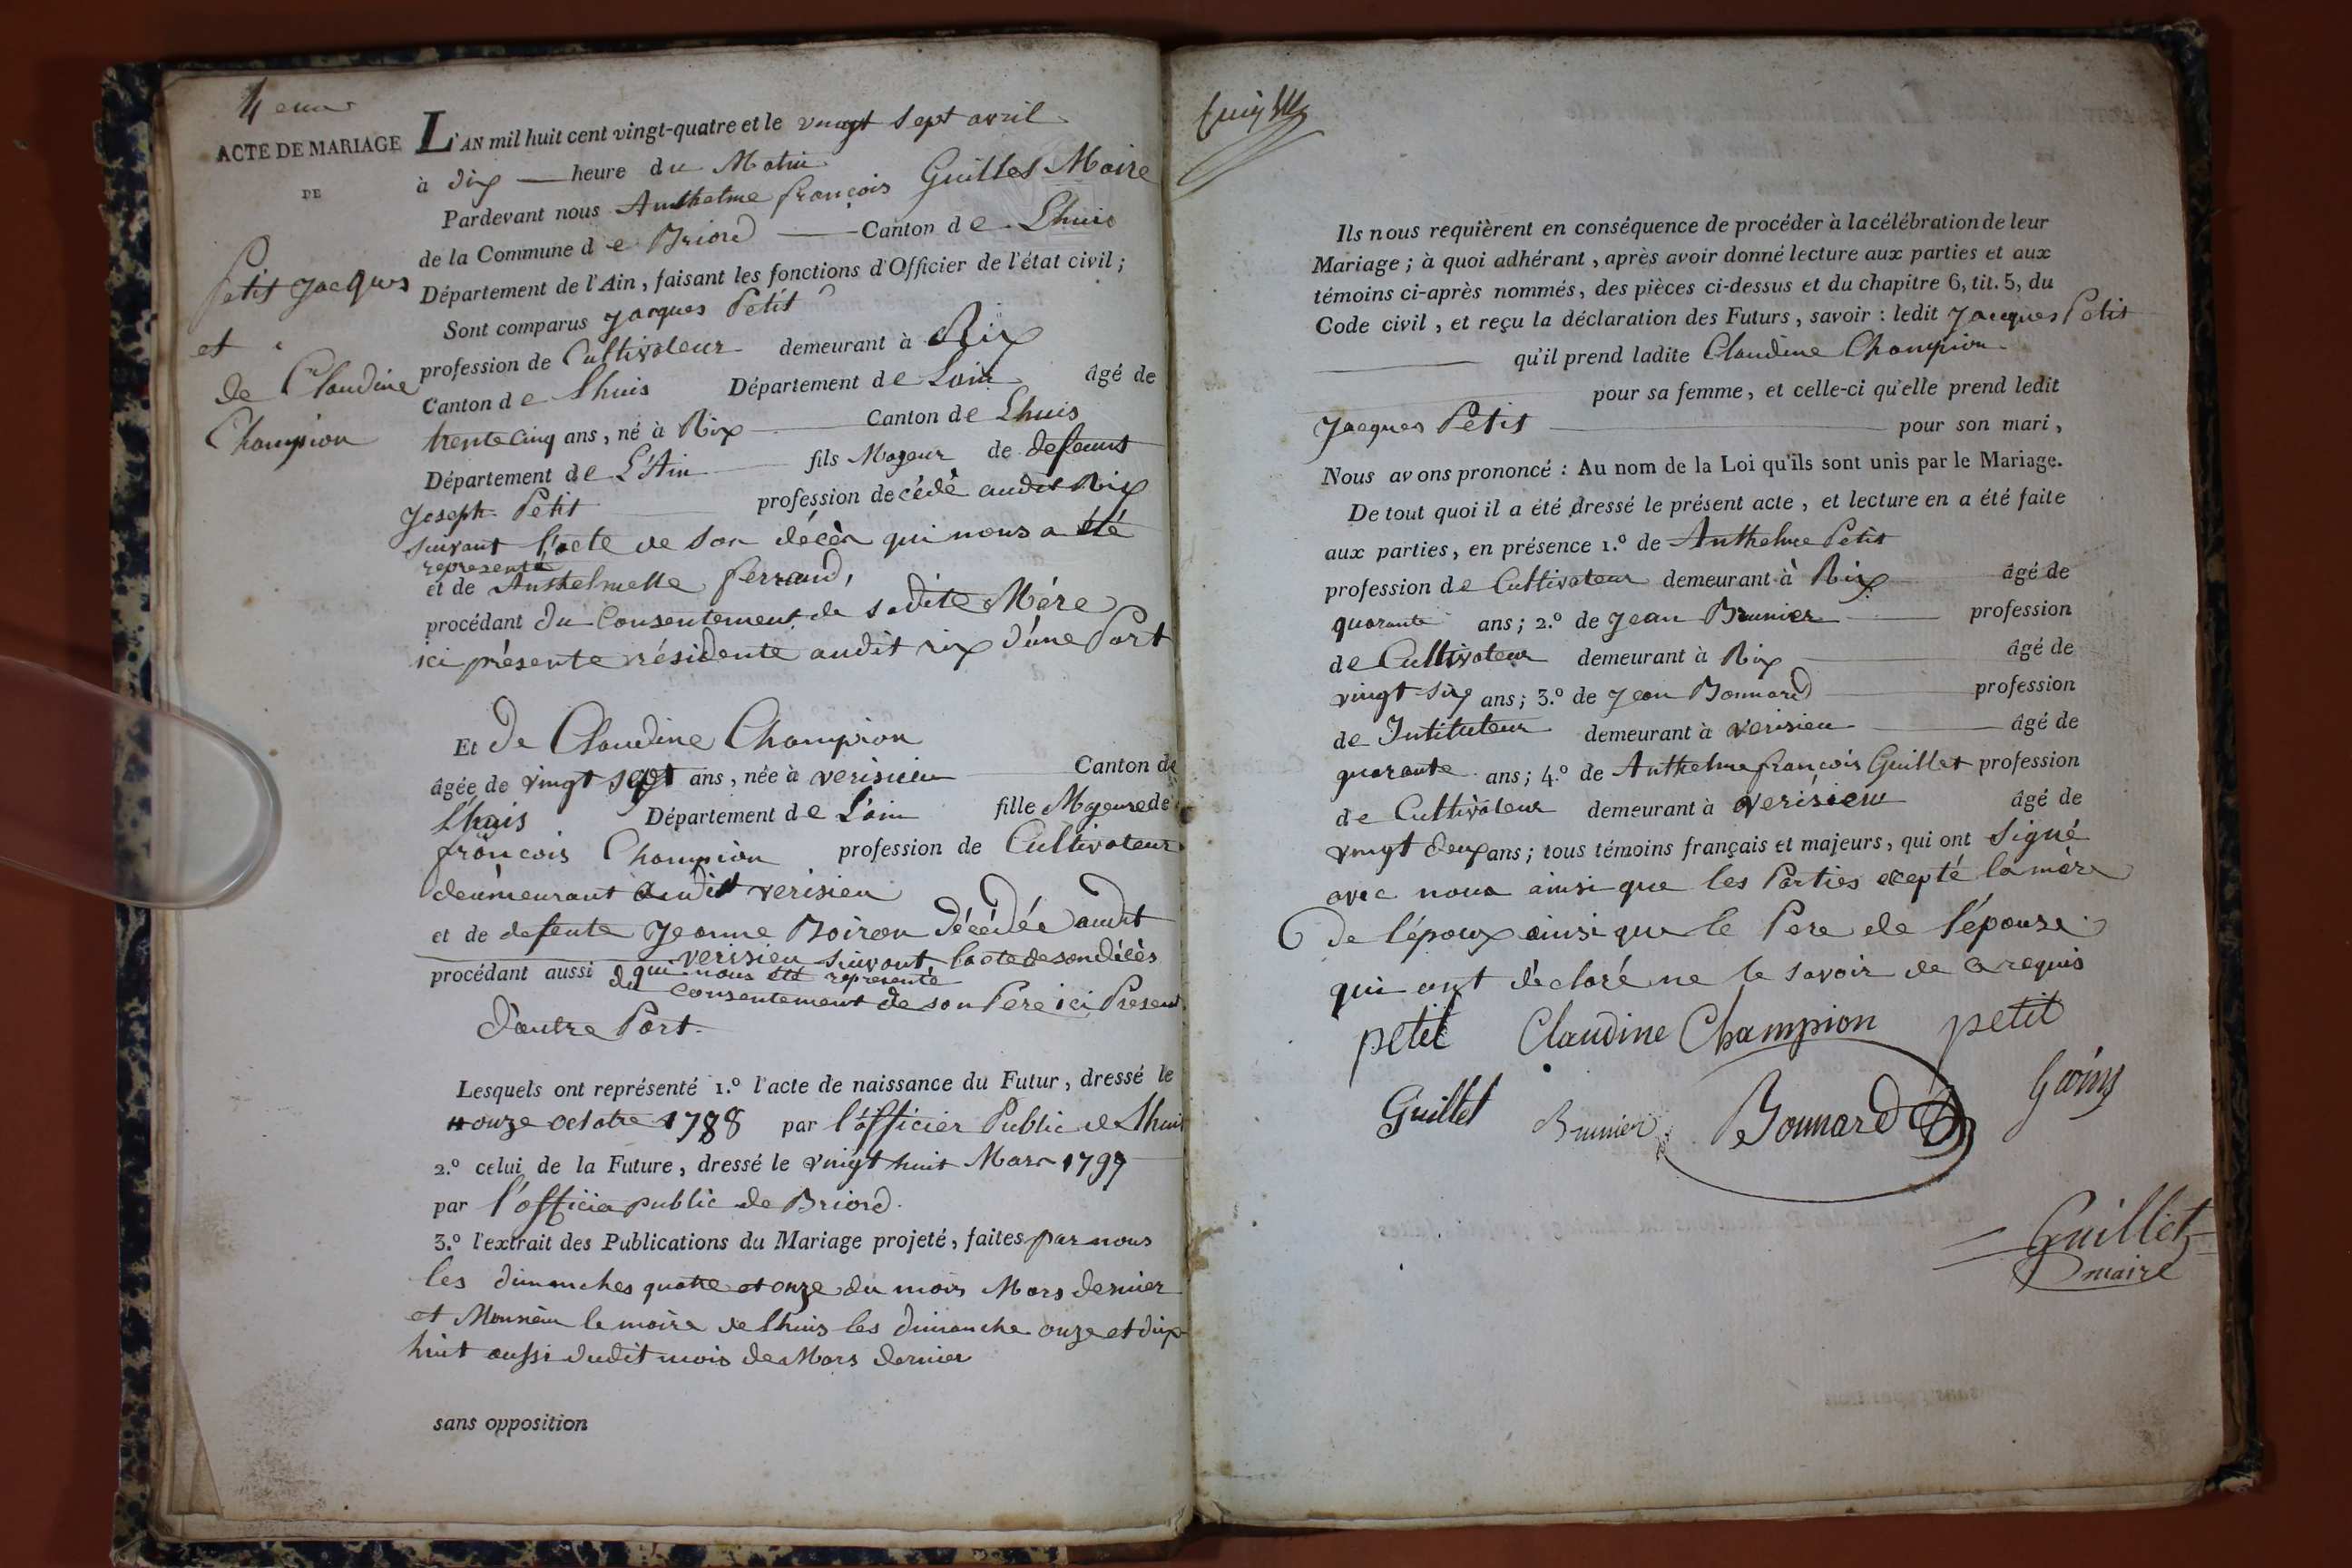 4eme
ACTE DE MARIAGE
DE
Petit Jacques
et
de Claudine
Champion
L'AN mil huit cent vingt-quatre et le vingt sept avril
à dix heure du Matin
Pardevant nous Anthelme françois Guillet Maire
de la Commune de Briord Canton de Lhuis
Département de l'Ain, faisant les fonctions d'Officier de l'état civil;
Sont comparus Jacques Petit
profession de Cultivateur demeurant à Rix
Canton de Lhuis Département de Lain âgé de
trente cinq ans, né à Rix Canton de Lhuis
Département de L'Ain fils Mageur de defeunt
Joseph Petit profession decédé audit Rix
suivant l'acte de son décès qui nous a été
representé
et de Anthelmette ferrand,
procédant du Consentement de sadite Mère
ici présente résidente audit rix d'une Part
Et De Claudine Champion
âgée de vingt sept ans, née à verisieu Canton de
Lhuis Département de Lain fille Mageure de
françois Champion profession de Cultivateur
deumeurant audit verisieu
et de defente Jeanne Boiron décédée audit
verisieu suivant lacte de son décès
qui nous été representé
procédant aussi du consentement de son Pere ici Present
D'autre Part.
Lesquels ont représenté 1.º l'acte de naissance du Futur, dressé le
onze octobre 1788 par l'officier Public de Lhuis
2.º celui de la Future, dressé le vingt huit Mars 1797
par l'officier public de Briord.
3.º l'extrait des Publications du Mariage projeté, faites par nous
les dimanches quatre et onze du mois Mars dernier
et Monsieur le maire de lhuis les dimanche onze et dix
huit aussi dudit mois de Mars dernier
sans opposition
Ils nous requièrent en conséquence de procéder à la célébration de leur
Mariage; à quoi adhérant, après avoir donné lecture aux parties et aux
témoins ci-après nommés, des pièces ci-dessus et du chapitre 6, tit. 5, du
Code civil, et reçu la déclaration des Futurs, savoir: ledit Jacques Petit
qu'il prend ladite Claudine Champion
pour sa femme, et celle-ci qu'elle prend ledit
Jacques Petit pour son mari,
Nous avons prononcé: Au nom de la Loi qu'ils sont unis par le Mariage.
De tout quoi il a été dressé le présent acte, et lecture en a été faite
aux parties, en présence 1.º de Anthelme Petit
profession de Cultivateur demeurant à Rix âgé de
quarante ans; 2.º de Jean Brunier profession
de Cultivateur demeurant à Rix âgé de
vingt six ans; 3.º de Jean Bonnard profession
de Intituteur demeurant à verisieu âgé de
quarante ans; 4.º de Anthelme françois Guillet profession
de Cultivateur demeurant à verisieu âgé de
vingt deux ans; tous témoins français et majeurs, qui ont signé
avec nous ainsi que les Parties excepté la mère
de l'époux ainsi que le Pere de l'épouse
qui ont décloré ne le savoir de ce requis
petit Claudine Champion petit
Guillet Brunier Bonnard
Guillet
maire